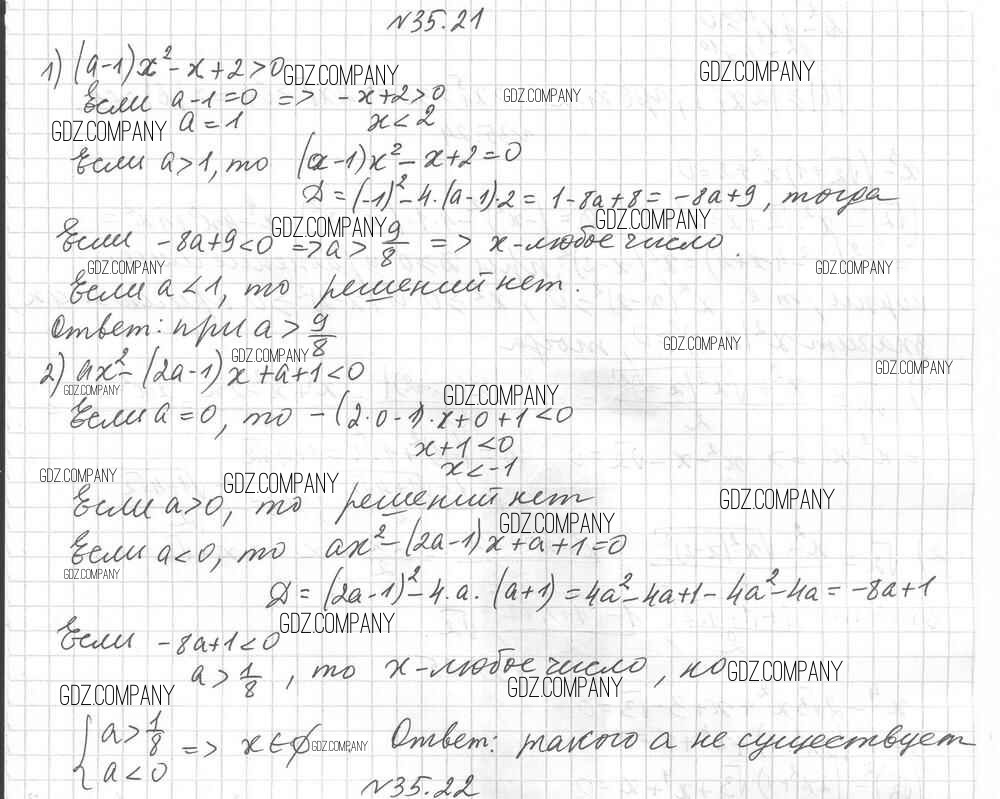 №35.21
1) (a-1)x² - x + 2 > 0 GDZ.COMPANY GDZ.COMPANY
Если a-1=0 => -x+2>0 GDZ.COMPANY
GDZ.COMPANY a = 1 x < 2
Если a>1, то (a-1)x² - x + 2 = 0
D = (-1)² - 4·(a-1)·2 = 1-8a+8 = -8a+9, тогда
GDZ.COMPANY GDZ.COMPANY
Если -8a+9<0 => a > 9/8 => x-любое число.
GDZ.COMPANY GDZ.COMPANY
Если a<1, то решений нет.
Ответ: при a > 9/8
GDZ.COMPANY GDZ.COMPANY
2) ax² - (2a-1)x + a + 1 < 0 GDZ.COMPANY
GDZ.COMPANY GDZ.COMPANY
Если a=0, то -(2·0-1)·x+0+1<0
x+1<0
x<-1
GDZ.COMPANY GDZ.COMPANY GDZ.COMPANY
Если a>0, то решений нет
GDZ.COMPANY
Если a<0, то ax² - (2a-1)x + a + 1 = 0
GDZ.COMPANY
D = (2a-1)² - 4·a·(a+1) = 4a² - 4a + 1 - 4a² - 4a = -8a+1
GDZ.COMPANY
Если -8a+1<0
a > 1/8, то x-любое число, но GDZ.COMPANY
GDZ.COMPANY GDZ.COMPANY
{ a > 1/8
a < 0 => x ∈ ∅ GDZ.COMPANY Ответ: такого a не существует
№35.22